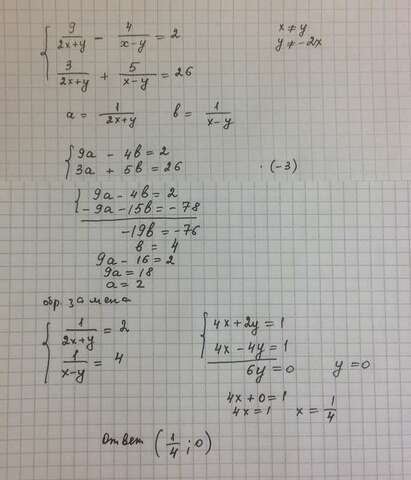 9/(2x+y) - 4/(x-y) = 2    x ≠ y
3/(2x+y) + 5/(x-y) = 26    y ≠ -2x
a = 1/(2x+y)    b = 1/(x-y)
9a - 4b = 2
3a + 5b = 26    ·(-3)
9a - 4b = 2
-9a - 15b = -78
-19b = -76
b = 4
9a - 16 = 2
9a = 18
a = 2
обр. замена
1/(2x+y) = 2    4x + 2y = 1
1/(x-y) = 4    4x - 4y = 1
6y = 0    y = 0
4x + 0 = 1
4x = 1    x = 1/4
Ответ (1/4 ; 0)